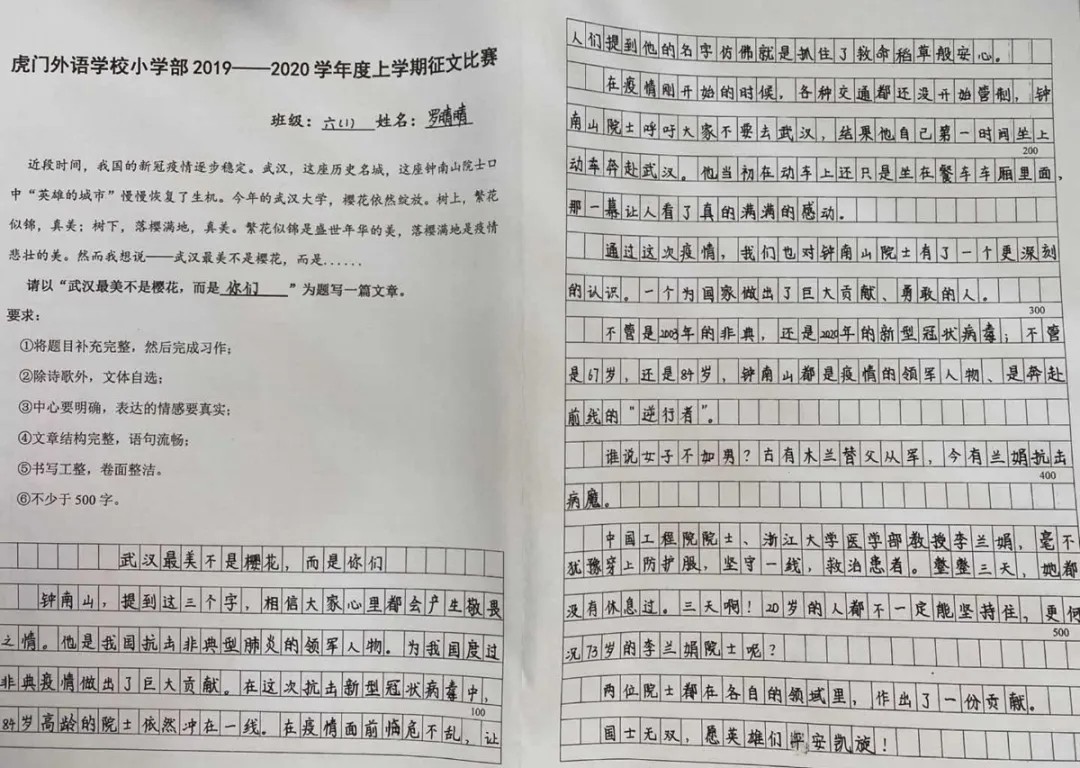 虎门外语学校小学部 2019——2020 学年度上学期征文比赛
班级：六(1) 姓名：罗晴晴
近段时间，我国的新冠疫情逐步稳定。武汉，这座历史名城，这座钟南山院士口
中“英雄的城市”慢慢恢复了生机。今年的武汉大学，樱花依然绽放。树上，繁花
似锦，真美；树下，落樱满地，真美。繁花似锦是盛世年华的美，落樱满地是疫情
悲壮的美。然而我想说——武汉最美不是樱花，而是......
请以“武汉最美不是樱花，而是 你们 ”为题写一篇文章。
要求：
①将题目补充完整，然后完成习作；
②除诗歌外，文体自选；
③中心要明确，表达的情感要真实；
④文章结构完整，语句流畅；
⑤书写工整，卷面整洁。
⑥不少于 500 字。
武汉最美不是樱花，而是你们
钟南山，提到这三个字，相信大家心里都会产生敬畏
之情。他是我国抗击非典型肺炎的领军人物。为我国度过
非典疫情做出了巨大贡献。在这次抗击新型冠状病毒中，
100
84岁高龄的院士依然冲在一线。在疫情面前临危不乱，让
人们提到他的名字仿佛就是抓住了救命稻草般安心。
在疫情刚开始的时候，各种交通都还没开始管制，钟
南山院士呼吁大家不要去武汉，结果他自己第一时间坐上
200
动车奔赴武汉。他当初在动车上还只是坐在餐车车厢里面，
那一幕让人看了真的满满的感动。
通过这次疫情，我们也对钟南山院士有了一个更深刻
的认识。一个为国家做出了巨大贡献、勇敢的人。
300
不管是2003年的非典，还是2020年的新型冠状病毒；不管
是67岁，还是84岁，钟南山都是疫情的领军人物、是奔赴
前线的“逆行者”。
谁说女子不如男？古有木兰替父从军，今有兰娟抗击
400
病魔。
中国工程院院士、浙江大学医学部教授李兰娟，毫不
犹豫穿上防护服，坚守一线，救治患者。整整三天，她都
没有休息过。三天啊！20岁的人都不一定能坚持住，更何
500
况73岁的李兰娟院士呢？
两位院士都在各自的领域里，作出了一份贡献。
国士无双，愿英雄们平安凯旋！